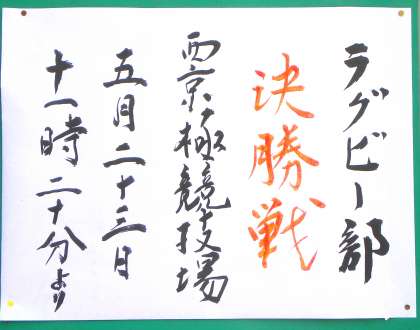 ラグビー部
決勝戦
西京極競技場
五月二十三日
十一時二十分より